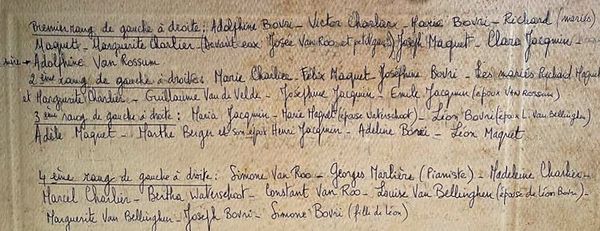 Premier rang de gauche à droite : Adolphine Bovri - Victor Charlier - Marie Bovri - Richard (mariés)
Maquet - Marguerite Charlier - (Devant eux Josée Van Roo et petit) Joseph Maquet - Clara Jacqmin
Adolphine Van Rossum
2ème rang de gauche à droite : Marie Charlier - Félix Maquet Joséphine Bovri - Les mariés Richard Maquet
et Marguerite Charlier - Guillaume Van de Velde - Joséphine Jacqmin - Emile Jacqmin (époux Van Rossum)
3ème rang de gauche à droite : Maria Jacqmin - Marie Maquet (épouse Waterschoot) - Léon Bovri (époux L. Van Bellinghen)
Adèle Maquet - Marthe Berger et son époux Henri Jacqmin - Adeline Bovri - Léon Maquet
4ème rang de gauche à droite : Simone Van Roo - Georges Marlière (Pianiste) - Madeleine Charlier -
Marcel Charlier - Bertha Waterschoot - Constant Van Roo - Louise Van Bellinghen (épouse de Léon Bovri) -
Marguerite Van Bellinghen - Joseph Bovri - Simone Bovri (fille de Léon)